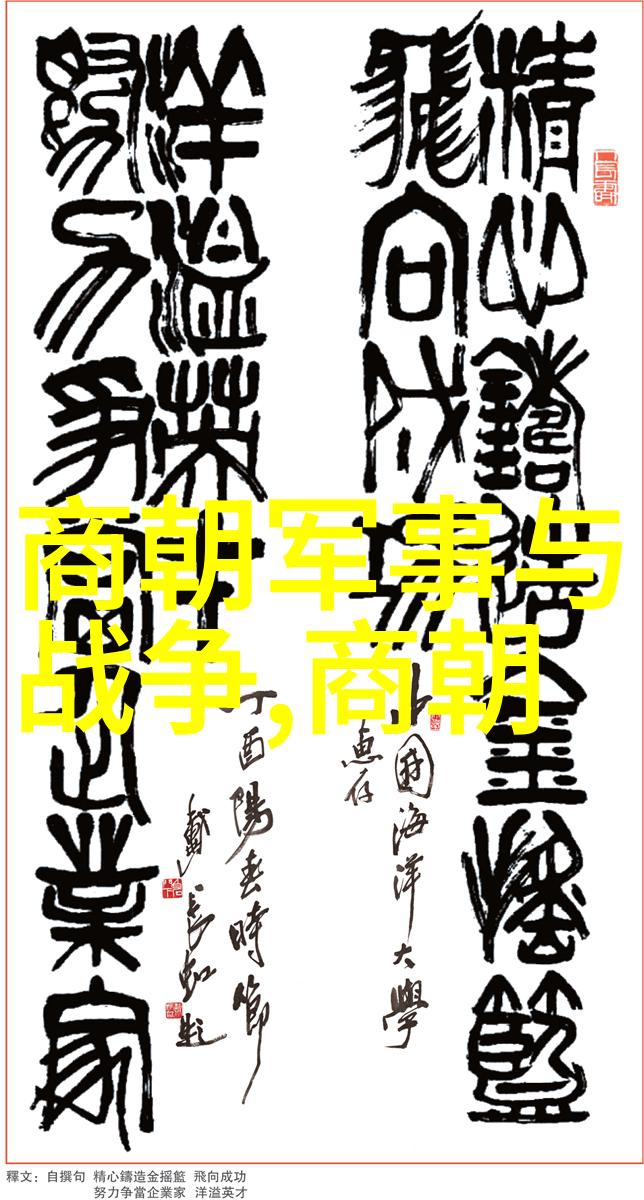 精心鑄造金摇籃
飛向成功
中國海洋大學
惠存
努力争當企業家
洋溢英才
丁酉陽春時節
戴長虹題
商朝军事与
战争,商朝
釋文：自撰句 精心鑄造金摇籃 飛向成功
努力争當企業家 洋溢英才